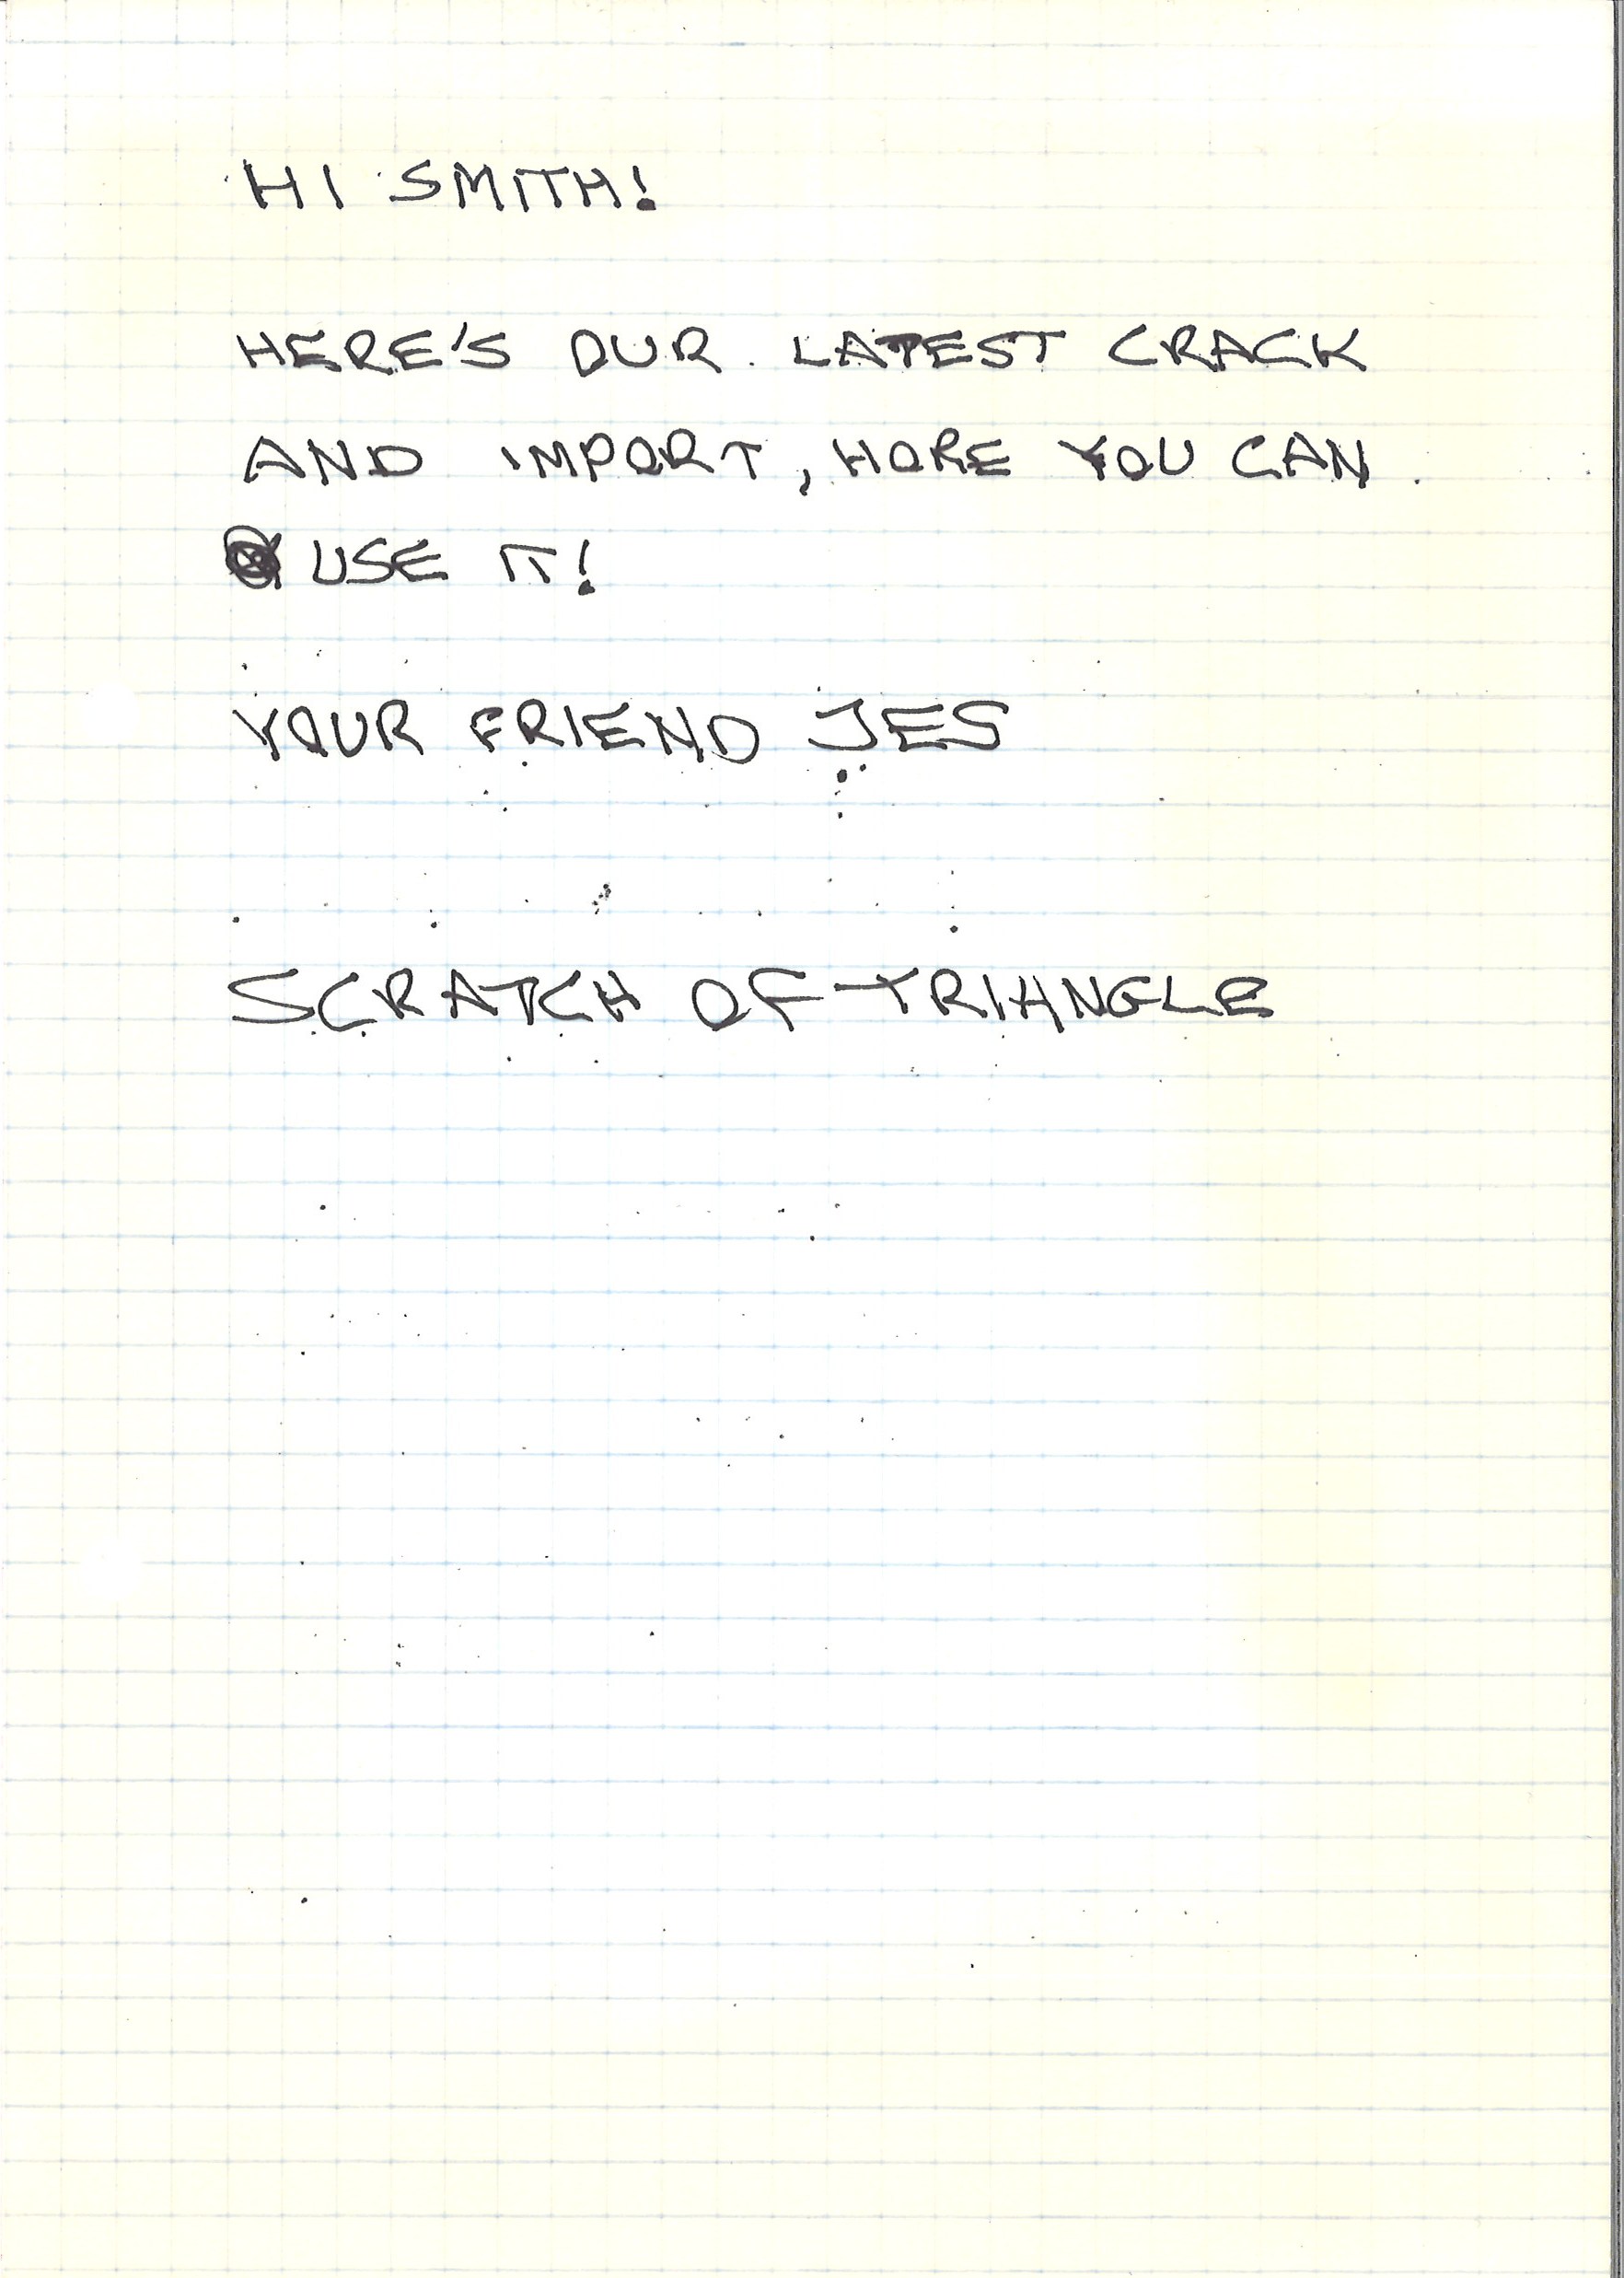 HI SMITH!
HERE'S OUR LATEST CRACK
AND IMPORT, HOPE YOU CAN
USE IT!
YOUR FRIEND JES
SCRATCH OF TRIANGLE